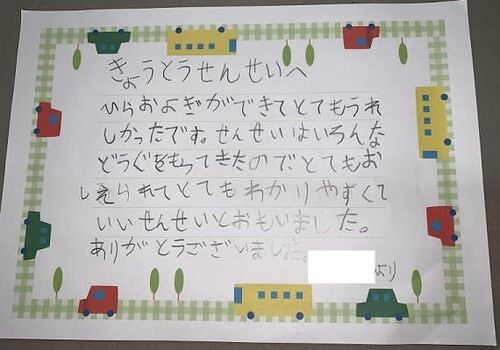 きょうとうせんせいへ
ひらおよぎができてとてもうれ
しかったです。せんせいはいろんな
どうぐをもってきたのでとてもお
しえられてとてもわかりやすくて
いいせんせいとおもいました。
ありがとうございました。
より